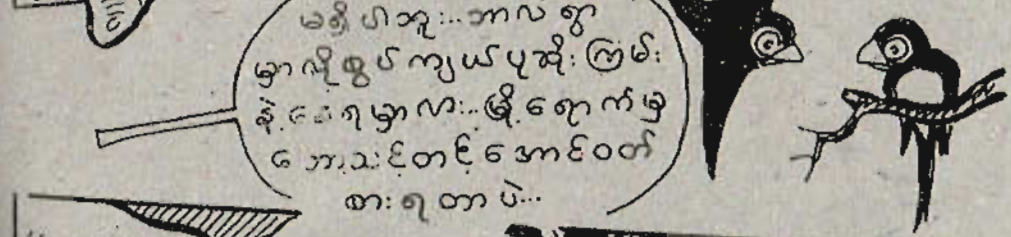 မရှိပါဘူး... ဘာလဲ ရွာ
မှာလို ထွပ်ကျယ်ပုဆိုးကြမ်း
နဲ့နေရမှာလား... မြို့ရောက်မှ
တော့သင့်တင့်အောင်ဝတ်
စားရတာပဲ...